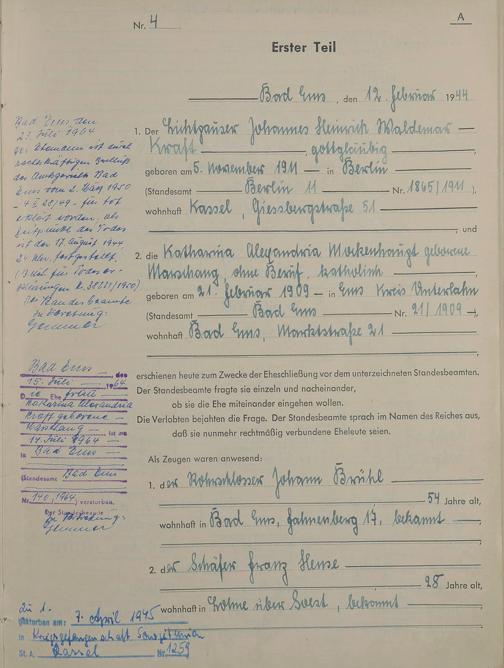 Nr. 4
A
Erster Teil
Bad Ems, den 12. Februar 1944
1. Der Lichtpauser Johannes Heinrich Waldemar
Kraft, gottgläubig
geboren am 5. November 1911 in Berlin
(Standesamt Berlin 11 Nr. 1865/1911),
wohnhaft Kassel, Giessbergstraße 51
, und
2. die Katharina Alexandria geborene
Marschang, ohne Beruf, katholisch
geboren am 21. Februar 1909 in Ems Kreis Unterlahn
(Standesamt Bad Ems Nr. 21/1909),
wohnhaft Bad Ems, Marktstraße 21
erschienen heute zum Zwecke der Eheschließung vor dem unterzeichneten Standesbeamten.
Der Standesbeamte fragte sie einzeln und nacheinander,
ob sie die Ehe miteinander eingehen wollen.
Die Verlobten bejahten die Frage. Der Standesbeamte sprach im Namen des Reiches aus,
daß sie nunmehr rechtmäßig verbundene Eheleute seien.
Als Zeugen waren anwesend:
1. der Rohrschlosser Johann Brühl
54 Jahre alt,
wohnhaft in Bad Ems, Fahnenberg 17, bekannt
2. der Schäfer Franz Hense
28 Jahre alt,
wohnhaft in Lohne über Soest, bekannt
Bad Ems, den
23. Juli 1964
Der Ehemann ist durch
rechtskräftigen Beschluß
des Amtsgerichts Bad
Ems vom 2. 1950
für tot
erklärt worden, als
Zeitpunkt des Todes
ist der 17. August 1944
24 Uhr, festgestellt.
(Buch für Todeser-
klärungen 1950)
Der Standesbeamte
In Vertretung:
Bad Ems den
15. Juli 1964
Die Ehefrau
Katharina Alexandria
Kraft geborene
Marschang ist am
14. Juli 1964
in Bad Ems
(Standesamt Bad Ems
Nr. 140/1964) verstorben.
Der Standesbeamte
In Vertretung:
Zu 1.
gestorben am: 7. April 1945
in Kriegsgefangenschaft Sowjetunion
St. A. Kassel Nr. 1259